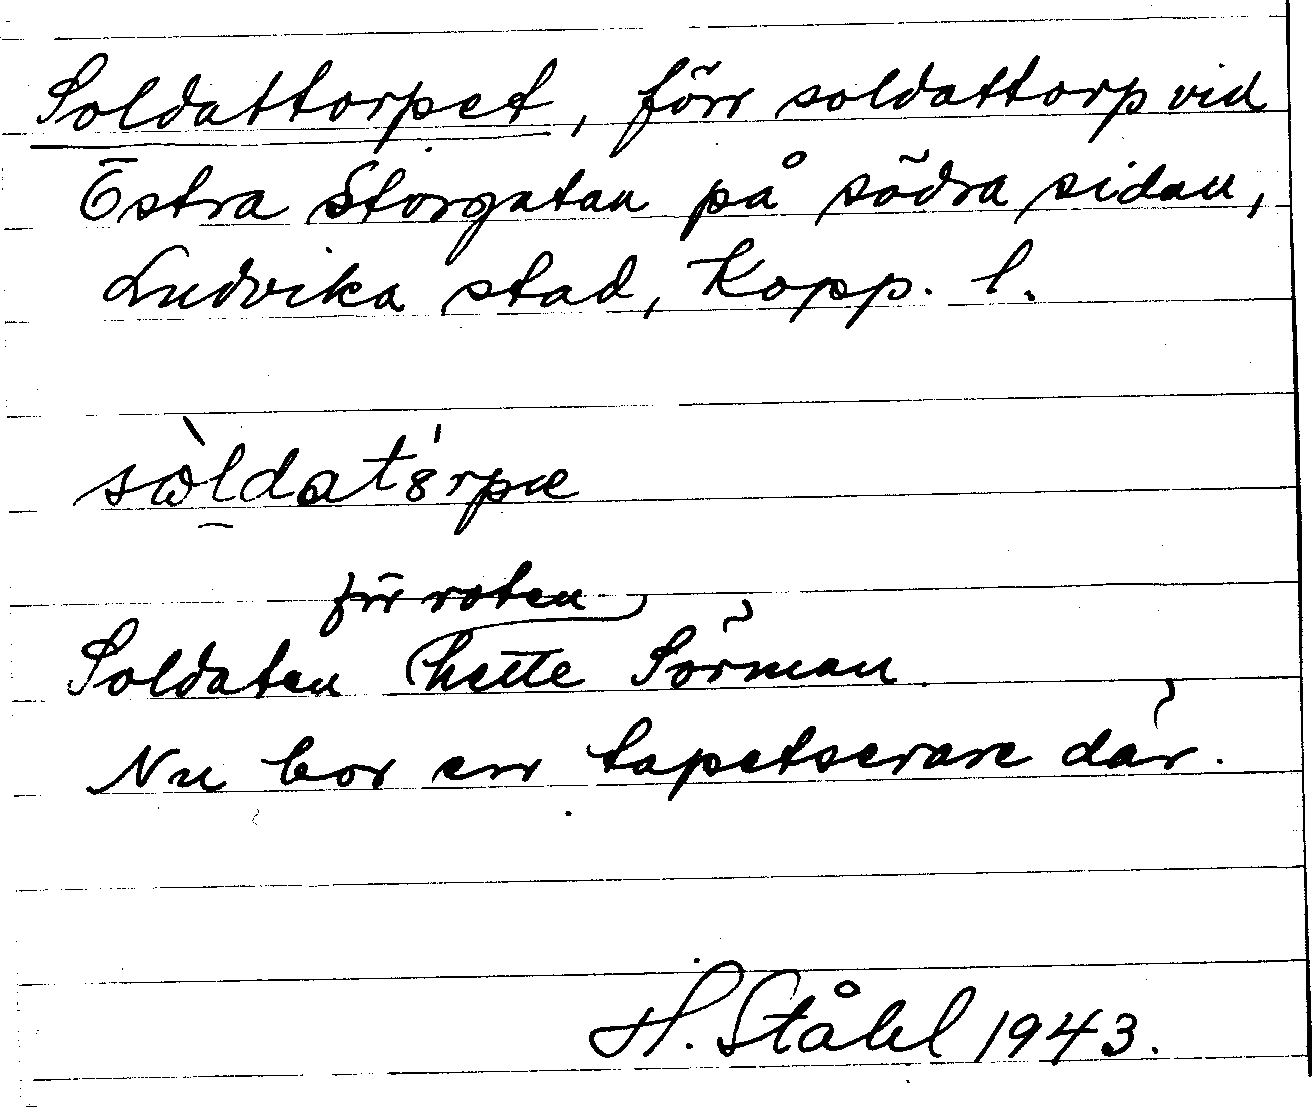 Soldattorpet, förr soldattorp vid
Östra Storgatan på södra sidan,
Ludvika stad, Kopp. l.
för roten
Soldaten hette Sörman.
Nu bor en tapetserare där.
H. Ståhl 1943.